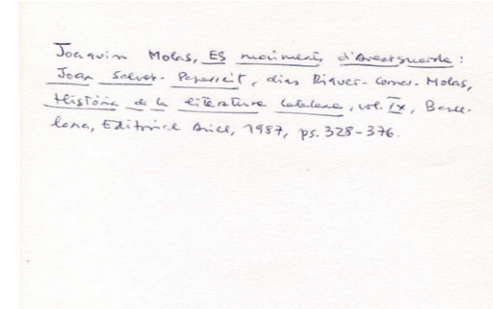 Joaquim Molas, Els moviments d'Avantguarda:
Joan Salvat-Papasseit, dins Riquer-Comas-Molas,
Història de la literatura catalana, vol. IX, Barce-
lona, Editorial Ariel, 1987, ps. 328-376.